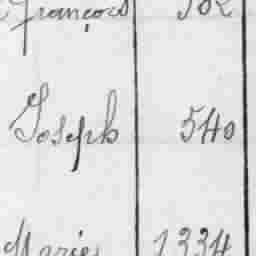 François 502
Joseph 540
Marie 1334